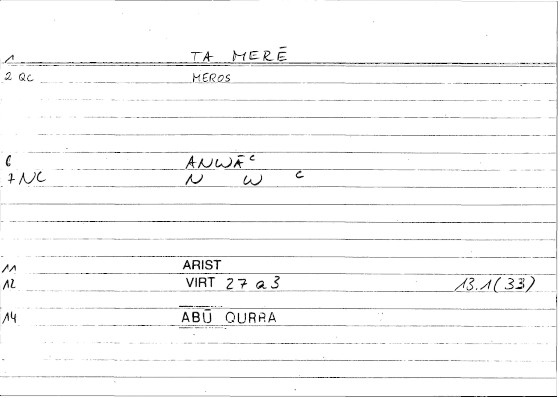 1 TA MERĒ
2 QC MEROS
6 ANWĀᶜ
7 NC N W ᶜ
11 ARIST
12 VIRT 27 a 3 13.1(33)
14 ABŪ QURRA